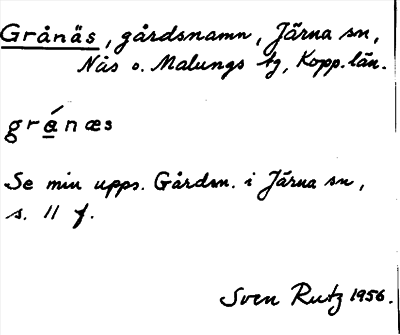 Grånäs, gårdsnamn, Järna sn,
Nås o. Malungs tg, Kopp. län.
grá̱næs
Se min upps. Gårdsn. i Järna sn,
s. 11 f.
Sven Rutz 1956.